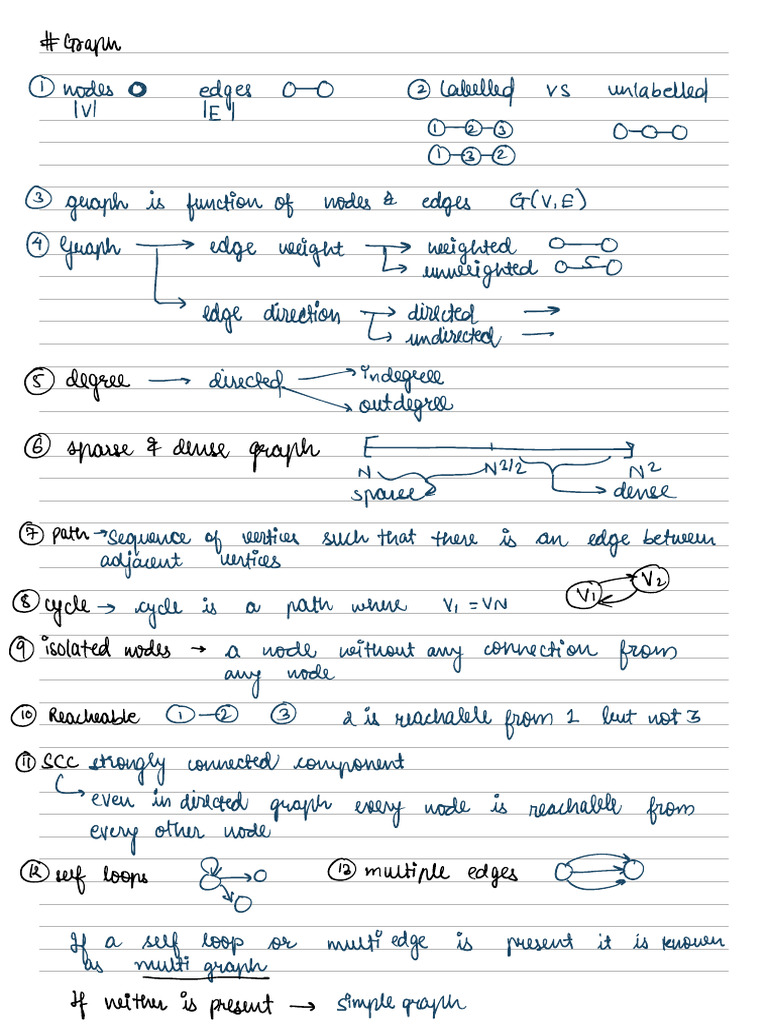 # Graph
① nodes edges ② labelled vs unlabelled
|V| |E|
① ② ③
① ③ ②
③ graph is function of nodes & edges G(V,E)
④ Graph → edge weight → weighted
↳ unweighted 5
↳ edge direction → directed →
↳ undirected —
⑤ degree → directed → indegree
→ outdegree
⑥ sparse & dense graph
N N²/2 N²
sparse → dense
⑦ path → sequence of vertices such that there is an edge between
adjacent vertices
⑧ cycle → cycle is a path where V1 = VN V1 V2
⑨ isolated nodes → a node without any connection from
any node
⑩ Reacheable ① ② ③ 2 is reachable from 1 but not 3
⑪ SCC strongly connected component
↳ even in directed graph every node is reachable from
every other node
⑫ self loops ⑬ multiple edges
If a self loop or multi edge is present it is known
as multi graph
If neither is present → simple graph